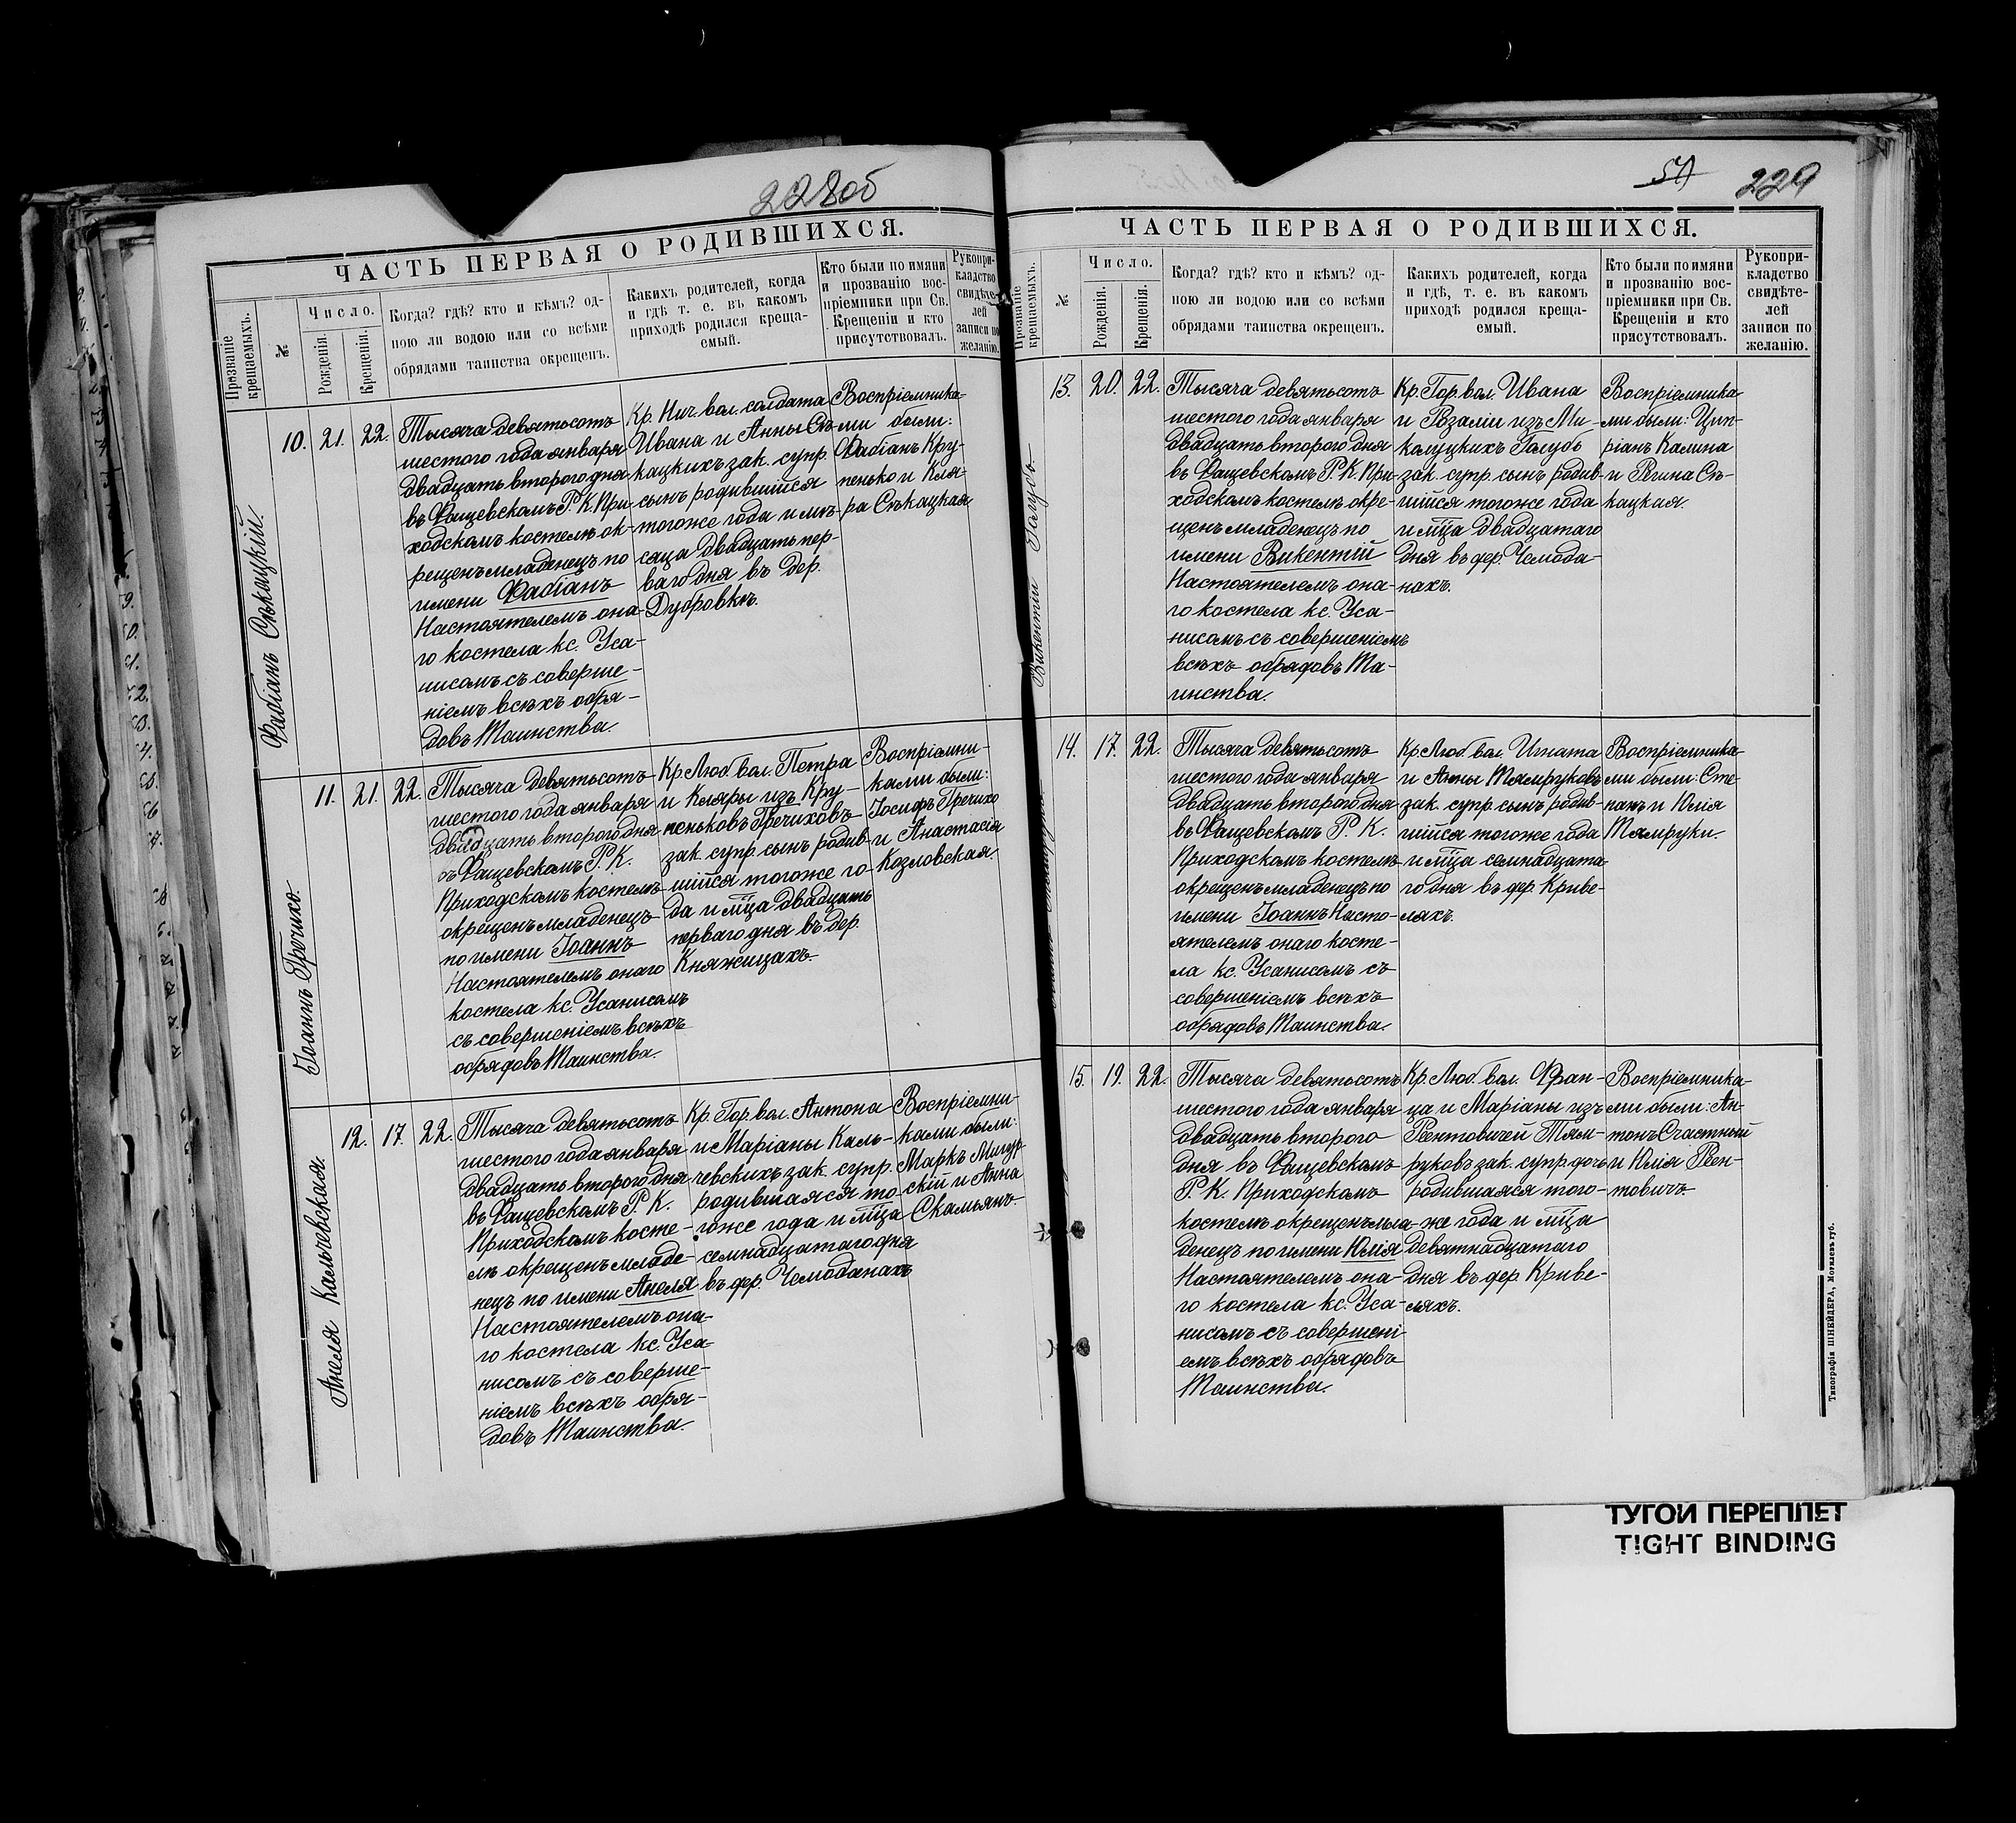 228об
ЧАСТЬ ПЕРВАЯ О РОДИВШИХСЯ.
Прозваніе крещаемыхъ.
№
Число.
Рожденія.
Крещенія.
Когда? гдѣ? кто и кѣмъ? од-
ною ли водою или со всѣми
обрядами таинства окрещенъ.
Какихъ родителей, когда
и гдѣ т. е. въ какомъ
приходѣ родился креща-
емый.
Кто были по имяни
и прозванію вос-
пріемники при Св.
Крещеніи и кто
присутствовалъ.
Рукопри-
кладство
свидѣте-
лей
записи по
желанію.
Фабіанъ Сѣкацкій.
10. 21. 22.
Тысяча девятьсотъ
шестого года января
двадцать второго дня
въ Фащевскомъ Р. К. При-
ходскомъ костелѣ ок-
рещенъ младенецъ по
имени Фабіанъ
Настоятелемъ она-
го костела кс. Уса-
нисомъ съ соверше-
ніемъ всѣхъ обря-
довъ Таинства.
Кр. Нич. вол. солдата
Ивана и Анны Сѣ-
кацкихъ зак. супр.
сынъ родившійся
тогоже года и мѣ-
сяца двадцать пер-
ваго дня въ дер.
Дубровкѣ.
Воспріемника-
ми были:
Фабіанъ Кру-
пенько и Кля-
ра Сѣкацкая.
Іоаннъ Гречихо.
11. 21. 22.
Тысяча девятьсотъ
шестого года января
двадцать второго дня
въ Фащевскомъ Р. К.
Приходскомъ костелѣ
окрещенъ младенецъ
по имени Іоаннъ
Настоятелемъ онаго
костела кс. Усанисомъ
съ совершеніемъ всѣхъ
обрядовъ Таинства.
Кр. Люб. вол. Петра
и Кляры изъ Кру-
пеньковъ Гречиховъ
зак. супр. сынъ родив-
шійся тогоже го-
да и мца двадцать
перваго дня въ дер.
Княжицахъ.
Воспріемни-
ками были:
Іосифъ Гречихо
и Анастасія
Козловская.
Анеля Кальчевская.
12. 17. 22.
Тысяча девятьсотъ
шестого года января
двадцать второго дня
въ Фащевскомъ Р. К.
Приходскомъ косте-
лѣ окрещенъ младе-
нецъ по имени Анеля
Настоятелемъ она-
го костела кс. Уса-
нисомъ съ соверше-
ніемъ всѣхъ обря-
довъ Таинства.
Кр. Гор. вол. Антона
и Маріаны Каль-
чевскихъ зак. супр.
родившаяся то-
гоже года и мца
семнадцатаго дня
въ дер. Чемоданахъ
Воспріемни-
ками были:
Маркъ Мигур-
скій и Анна
Скамьянъ.
57
229
ЧАСТЬ ПЕРВАЯ О РОДИВШИХСЯ.
Прозваніе крещаемыхъ.
№
Число.
Рожденія.
Крещенія.
Когда? гдѣ? кто и кѣмъ? од-
ною ли водою или со всѣми
обрядами таинства окрещенъ.
Какихъ родителей, когда
и гдѣ, т. е. въ какомъ
приходѣ родился креща-
емый.
Кто были по имяни
и прозванію вос-
пріемники при Св.
Крещеніи и кто
присутствовалъ.
Рукопри-
кладство
свидѣте-
лей
записи по
желанію.
Викентій Голубъ.
13. 20. 22.
Тысяча девятьсотъ
шестого года января
двадцать второго дня
въ Фащевскомъ Р. К. При-
ходскомъ костелѣ окре-
щенъ младенецъ по
имени Викентій
Настоятелемъ она-
го костела кс. Уса-
нисомъ съ совершеніемъ
всѣхъ обрядовъ Та-
инства.
Кр. Гор. вол. Ивана
и Розаліи изъ Ми-
калуцкихъ Голубъ
зак. супр. сынъ родив-
шійся тогоже года
и мца двадцатаго
дня въ дер. Чемода-
нахъ.
Воспріемника-
ми были: Цип-
ріанъ Калина
и Регина Сѣ-
кацкая.
14. 17. 22.
Тысяча девятьсотъ
шестого года января
двадцать второго дня
въ Фащевскомъ Р. К.
Приходскомъ костелѣ
окрещенъ младенецъ по
имени Іоаннъ Насто-
ятелемъ онаго косте-
ла кс. Усанисомъ съ
совершеніемъ всѣхъ
обрядовъ Таинства.
Кр. Люб. вол. Игната
и Анны Тямруковъ
зак. супр. сынъ родив-
шійся тогоже года
и мца семнадцата-
го дня въ дер. Криве-
ляхъ.
Воспріемника-
ми были: Сте-
панъ и Юлія
Тямруки.
15. 19. 22.
Тысяча девятьсотъ
шестого года января
двадцать второго
дня въ Фащевскомъ
Р. К. Приходскомъ
костелѣ окрещенъ мла-
денецъ по имени Юлія
Настоятелемъ она-
го костела кс. Уса-
нисомъ съ совершені
емъ всѣхъ обрядовъ
Таинства.
Кр. Люб. вол. Фран-
ца и Маріаны изъ
Реентовичей Тям-
руковъ зак. супр. дочь
родившаяся того-
же года и мца
девятнадцатаго
дня въ дер. Криве-
ляхъ.
Воспріемника-
ми были: Ан-
тонъ Счастный
и Юлія Реен-
товичъ.
Типографія ШНЕЙДЕРА, Могилевъ губ.
ТУГОЙ ПЕРЕПЛЕТ
TIGHT BINDING